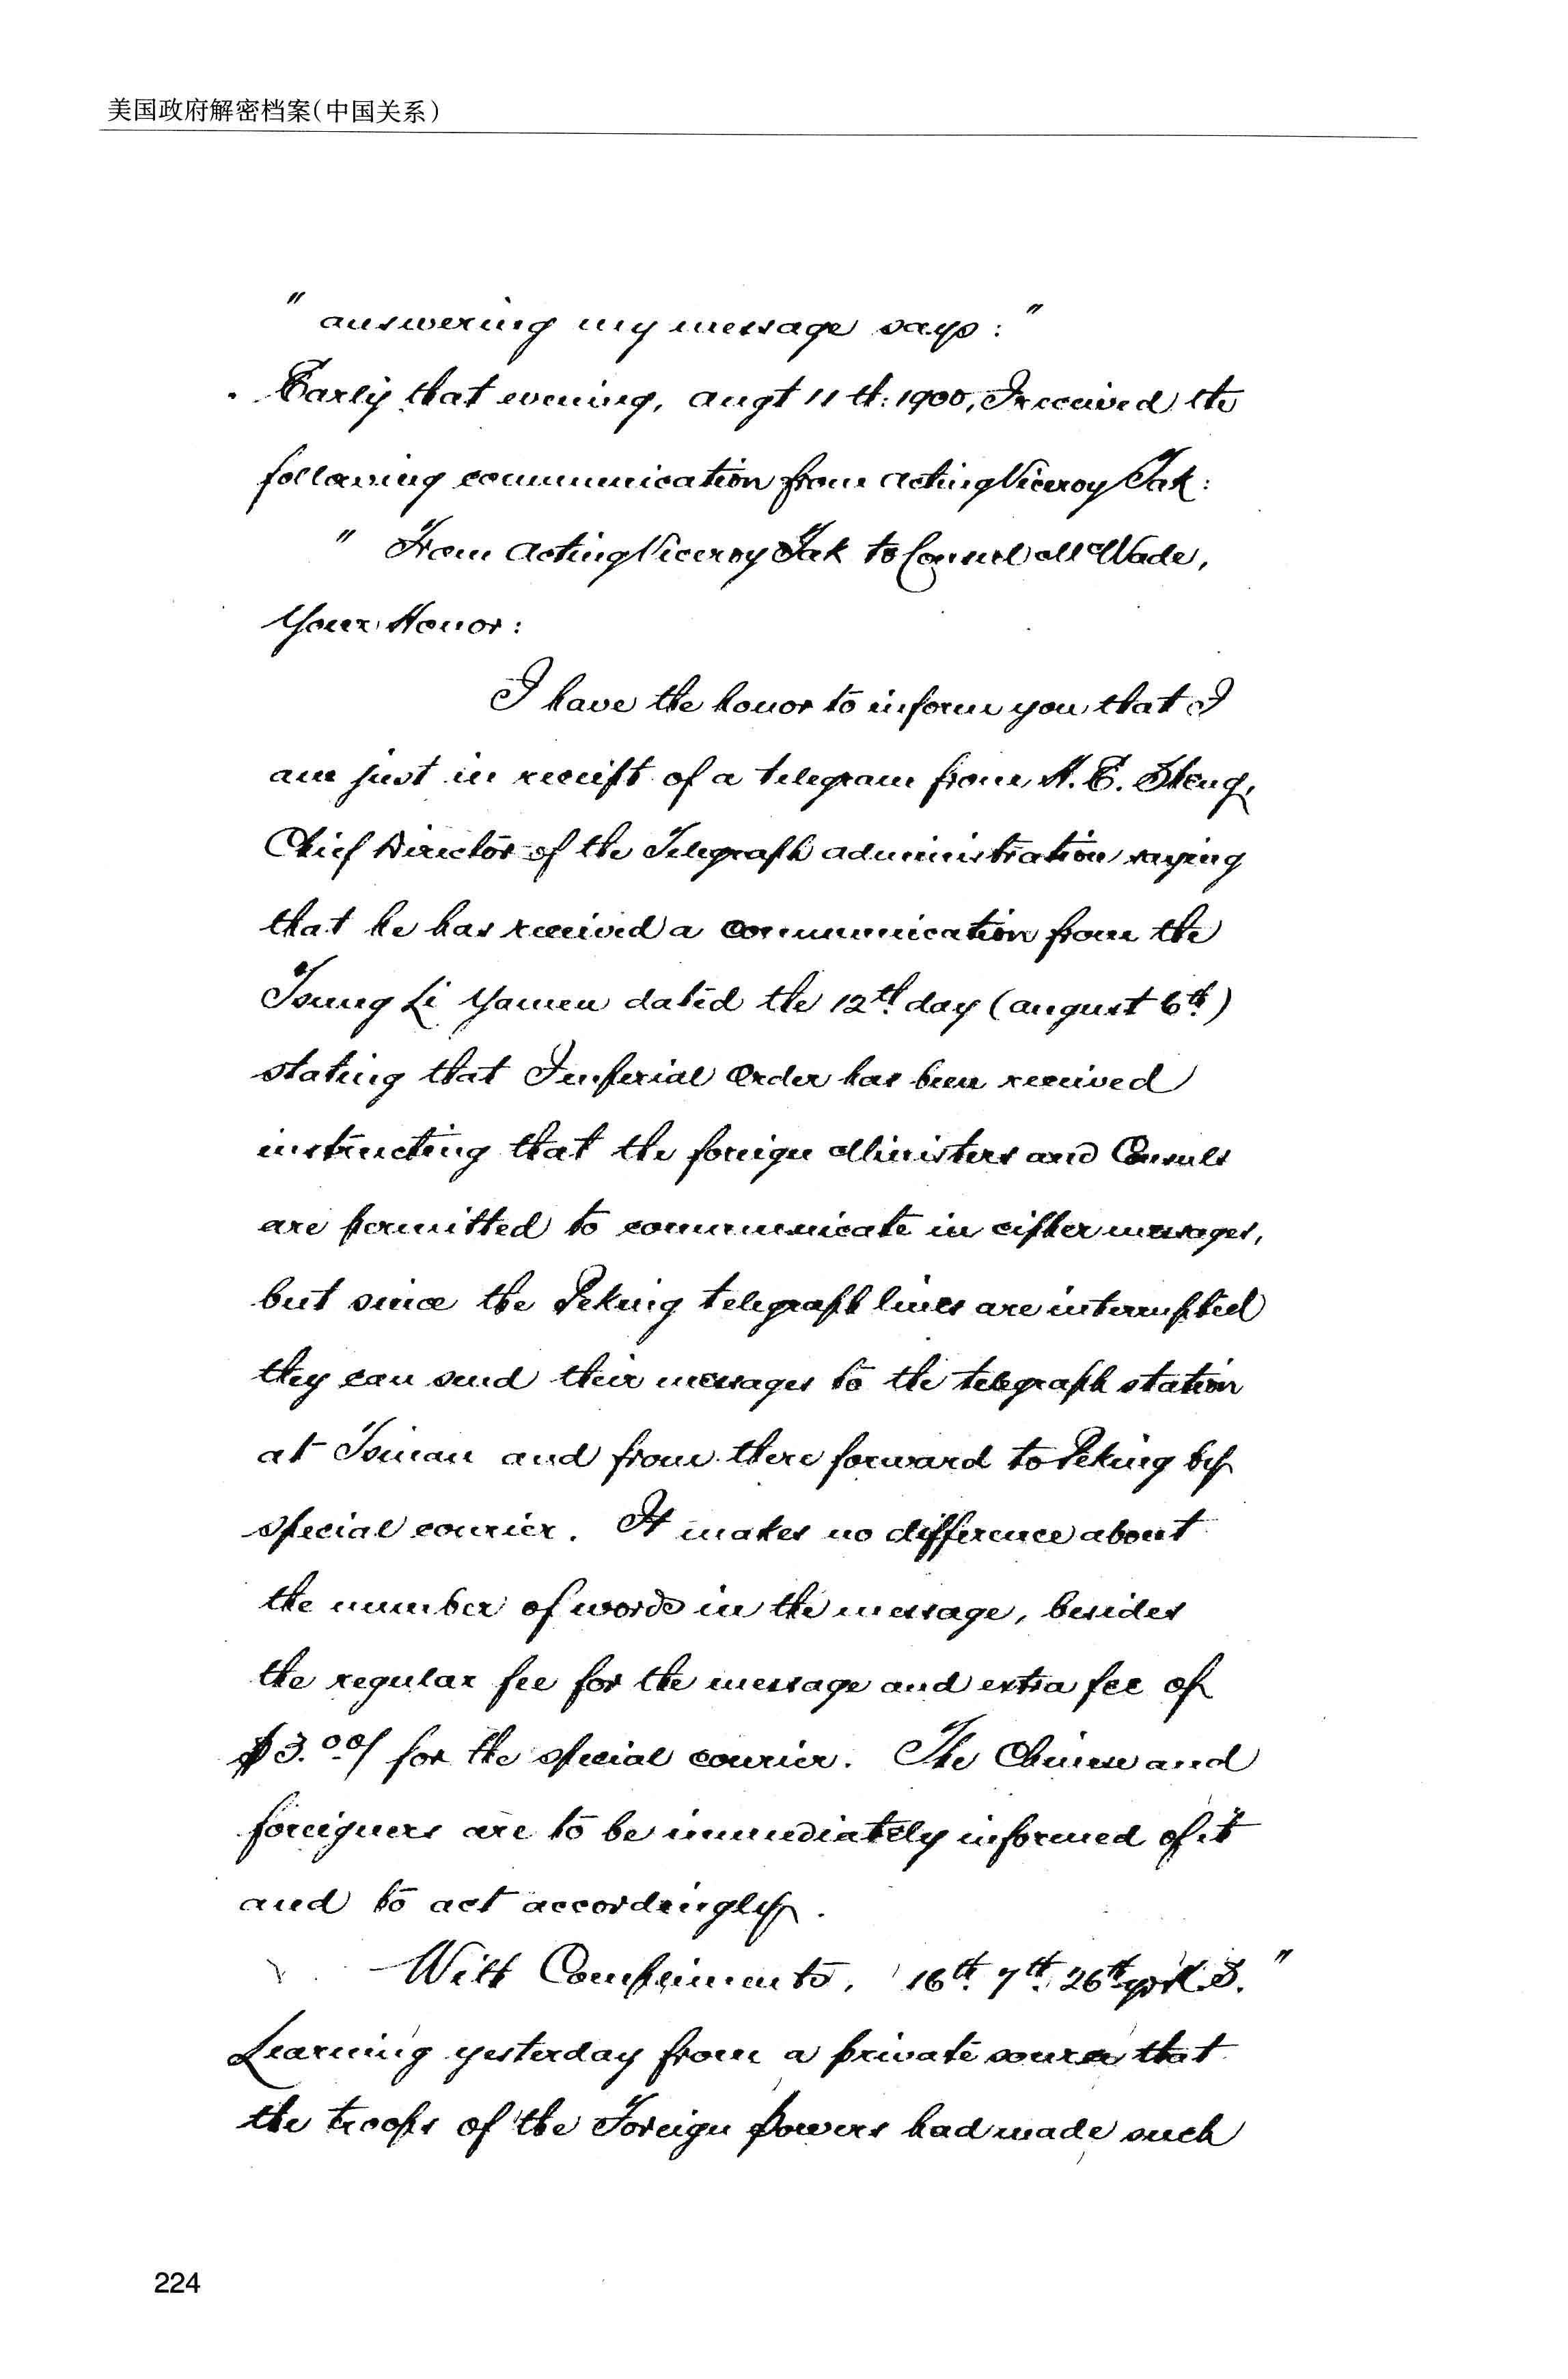 美国政府解密档案(中国关系)
" answering my message says: "
Early that evening, Augt 11th: 1900, I received the
following communication from Acting Viceroy Tak:
" From Acting Viceroy Tak to Consul McWade,
Your Honor:
I have the honor to inform you that I
am just in receipt of a telegram from H. E. Sheng,
Chief Director of the Telegraph administration saying
that he has received a communication from the
Tsung Li Yamen dated the 12th day (August 6th)
stating that Imperial Order has been received
instructing that the foreign Ministers and Consuls
are permitted to communicate in cipher messages,
but since the Peking telegraph lines are interrupted
they can send their messages to the telegraph station
at Tsinan and from there forward to Peking by
special courier. It makes no difference about
the number of words in the message, besides
the regular fee for the message and extra fee of
$3.00/ for the special courier. The Chinese and
foreigners are to be immediately informed of it
and to act accordingly.
With Compliments, 16th 7th 26th yr K.S. "
Learning yesterday from a private source that
the troops of the Foreign Powers had made such
224